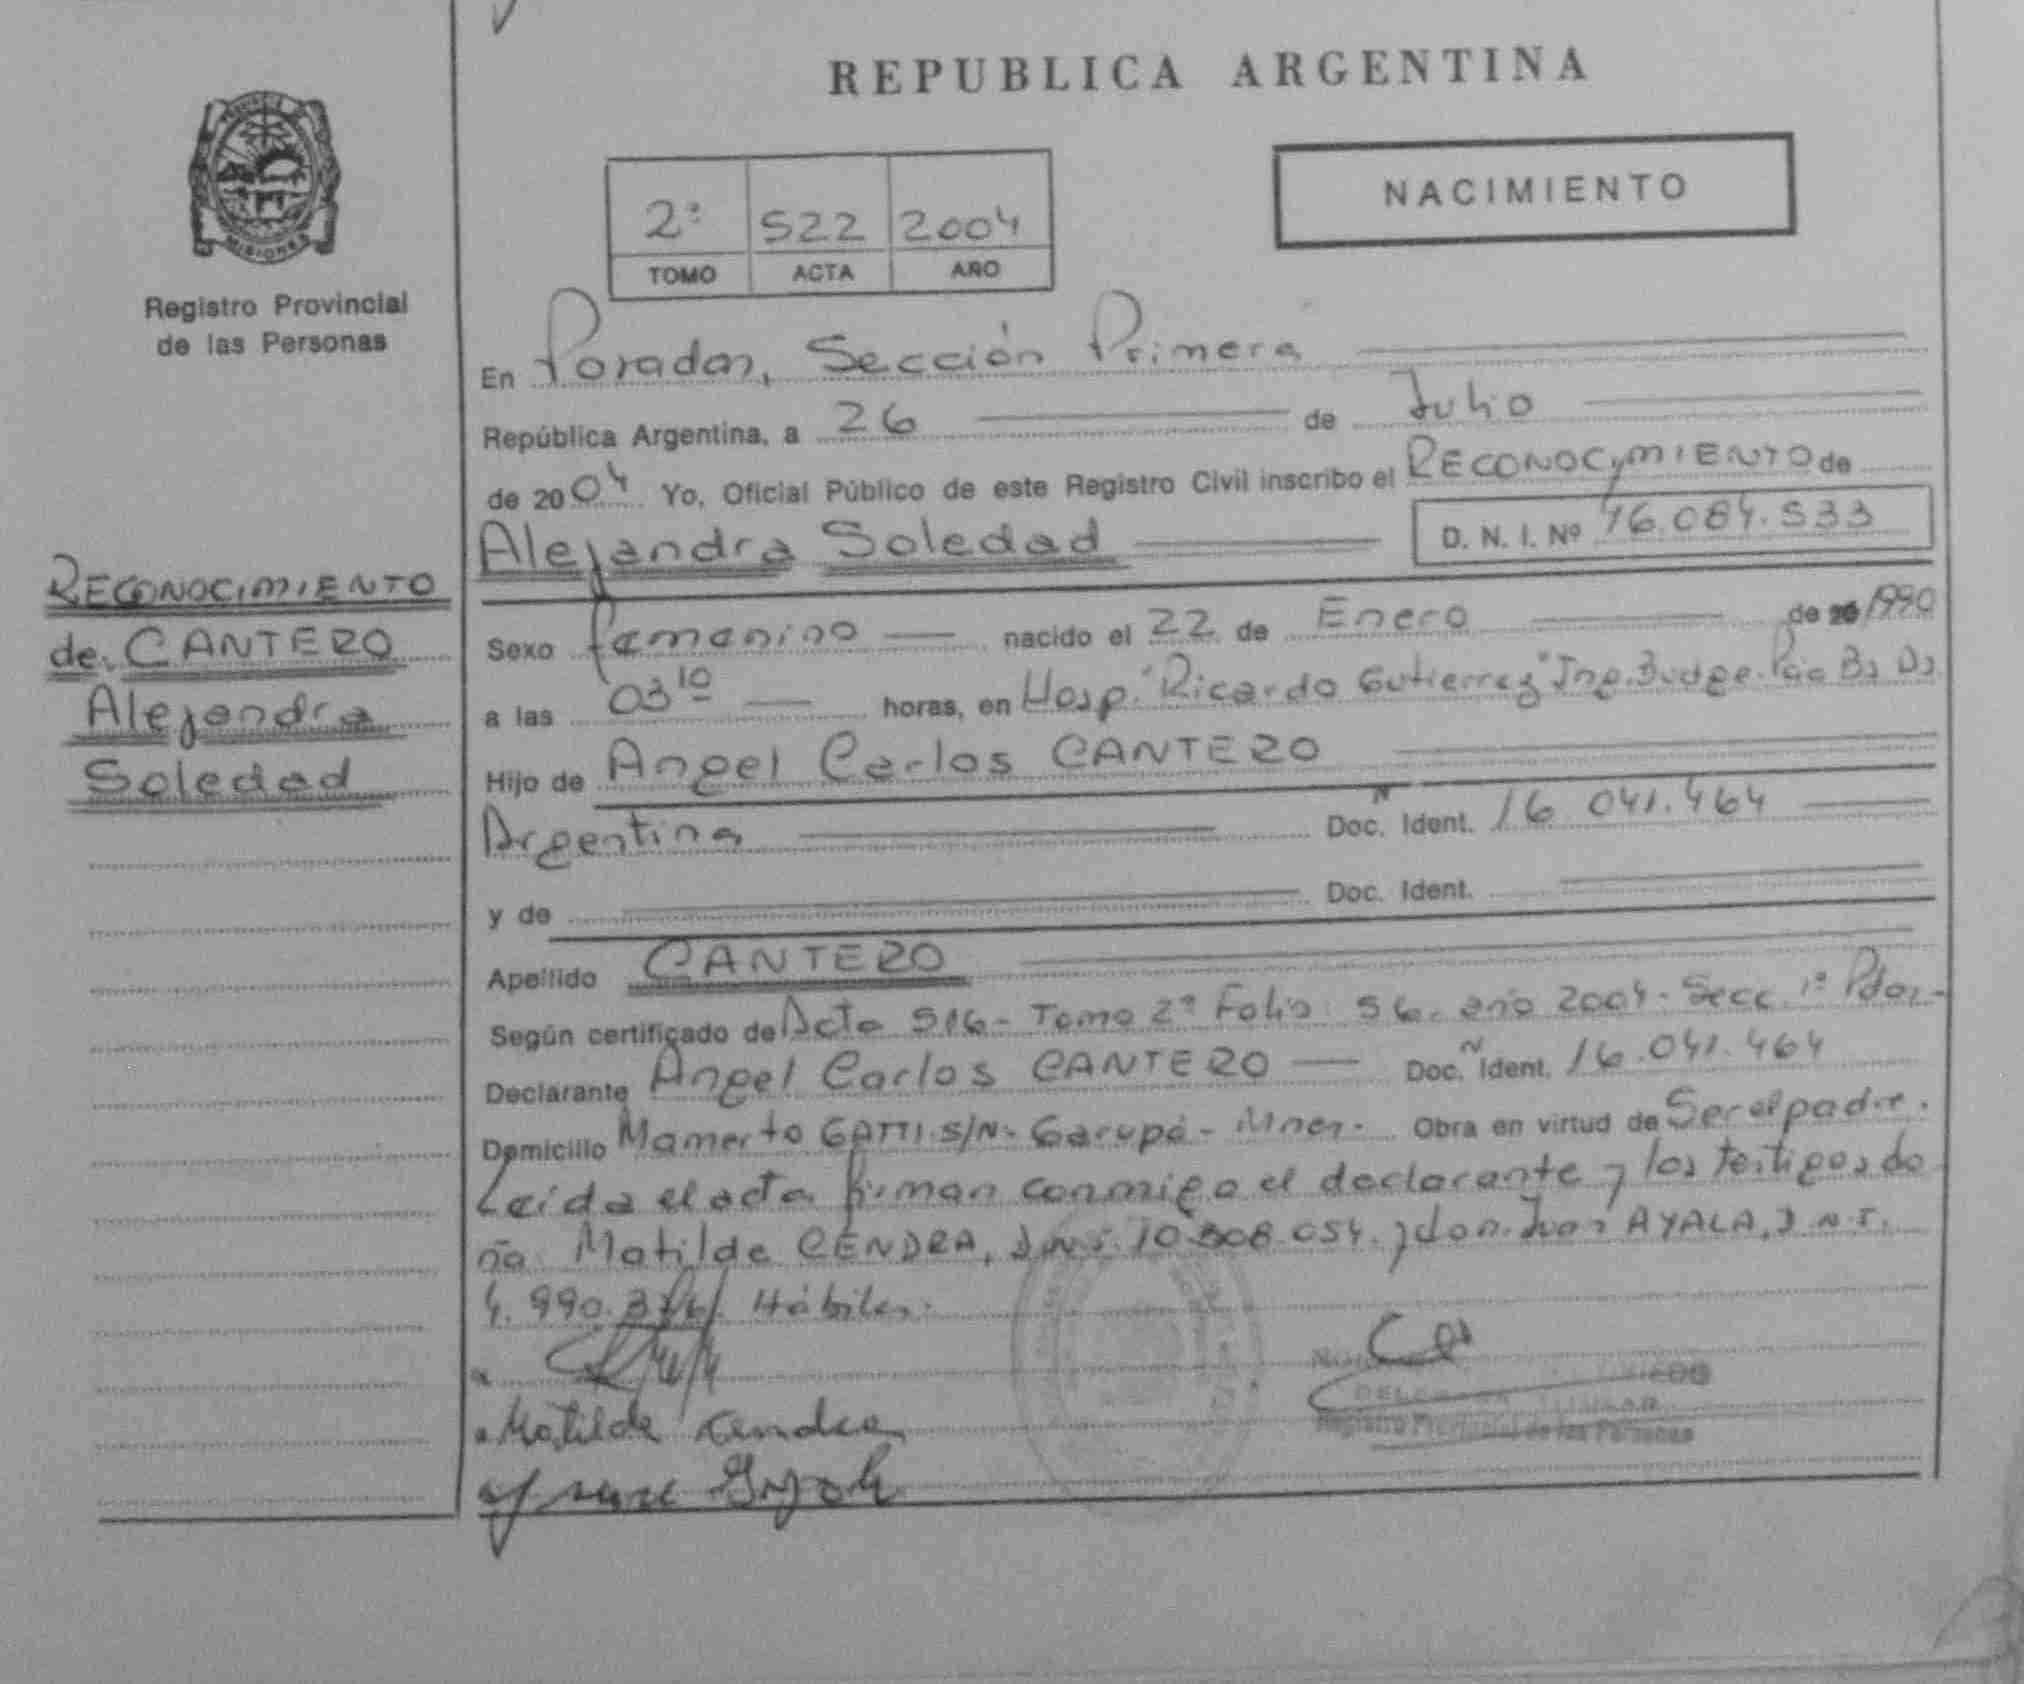 REPUBLICA ARGENTINA
NACIMIENTO
2ª 522 2004
TOMO ACTA AÑO
MISIONES
Registro Provincial
de las Personas
En Posadas, Sección Primera
República Argentina, a 26 de Julio
de 2004 Yo, Oficial Público de este Registro Civil inscribo el RECONOCIMIENTO de
Alejandra Soledad D. N. I. Nº 46.084.533
RECONOCIMIENTO
de CANTERO
Alejandra
Soledad
Sexo femenino nacido el 22 de Enero de 1990
a las 03 10 horas, en Hosp. "Ricardo Gutierrez" Ing. Budge. Pcia Bs As
Hijo de Angel Carlos CANTERO
Argentina Doc. Ident. 16.041.464
y de Doc. Ident.
Apellido CANTERO
Según certificado de Acta 516 - Tomo 2º Folio 56. año 2004. Secc. 1ª Pdas.-
Declarante Angel Carlos CANTERO Doc. Ident. 16.041.464
Domicilio Mamerto GATTI S/N- Garupá - Mnes. Obra en virtud de Ser el padre.
Leída el acta firman conmigo el declarante y los testigos do
ña Matilde CENDRA, D.N.I. 10.808.054. y don Juan AYALA, D.N.I.
4.990.376. Hábiles.
Matilde Cendra
Registro Provincial de las Personas